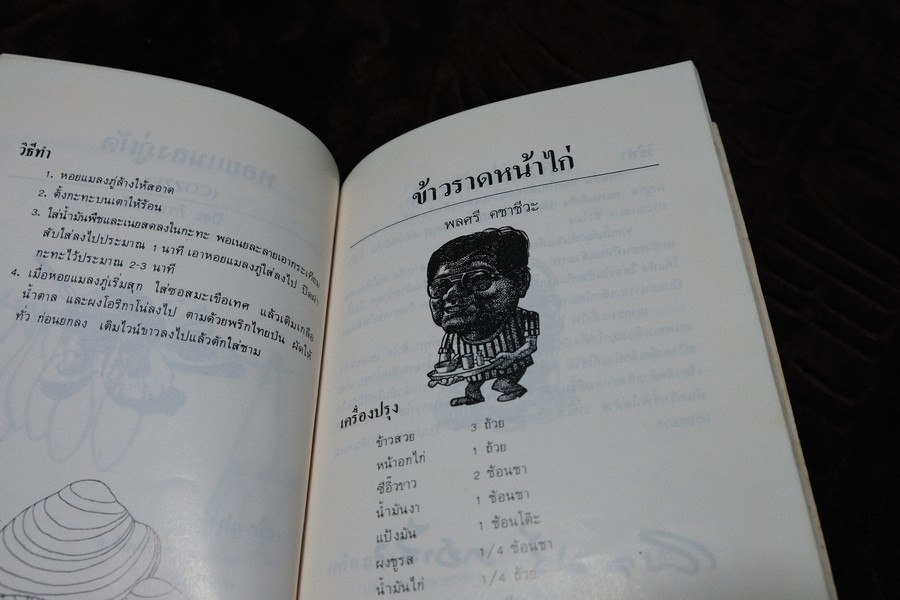 วิธีทำ
1. หอยแมลงภู่ล้างให้สอาด
2. ตั้งกะทะบนเตาให้ร้อน
3. ใส่น้ำมันพืชและเนยสดลงในกะทะ พอเนยละลายเอากระเทียม
สับใส่ลงไปประมาณ 1 นาที เอาหอยแมลงภู่ใส่ลงไป ปิดฝา
กะทะไว้ประมาณ 2-3 นาที
4. เมื่อหอยแมลงภู่เริ่มสุก ใส่ซอสมะเขือเทศ แล้วเติมเกลือ
น้ำตาล และผงโอริกาโน่ลงไป ตามด้วยพริกไทยป่น ผัดให้
ทั่ว ก่อนยกลง เติมไวน์ขาวลงไปแล้วตักใส่ชาม
ข้าวราดหน้าไก่
พลศรี คชาชีวะ
เครื่องปรุง
ข้าวสวย 3 ถ้วย
หน้าอกไก่ 1 ถ้วย
ซีอิ๊วขาว 2 ช้อนชา
น้ำมันงา 1 ช้อนชา
แป้งมัน 1 ช้อนโต๊ะ
ผงชูรส 1/4 ช้อนชา
น้ำมันไก่ 1/4 ถ้วย